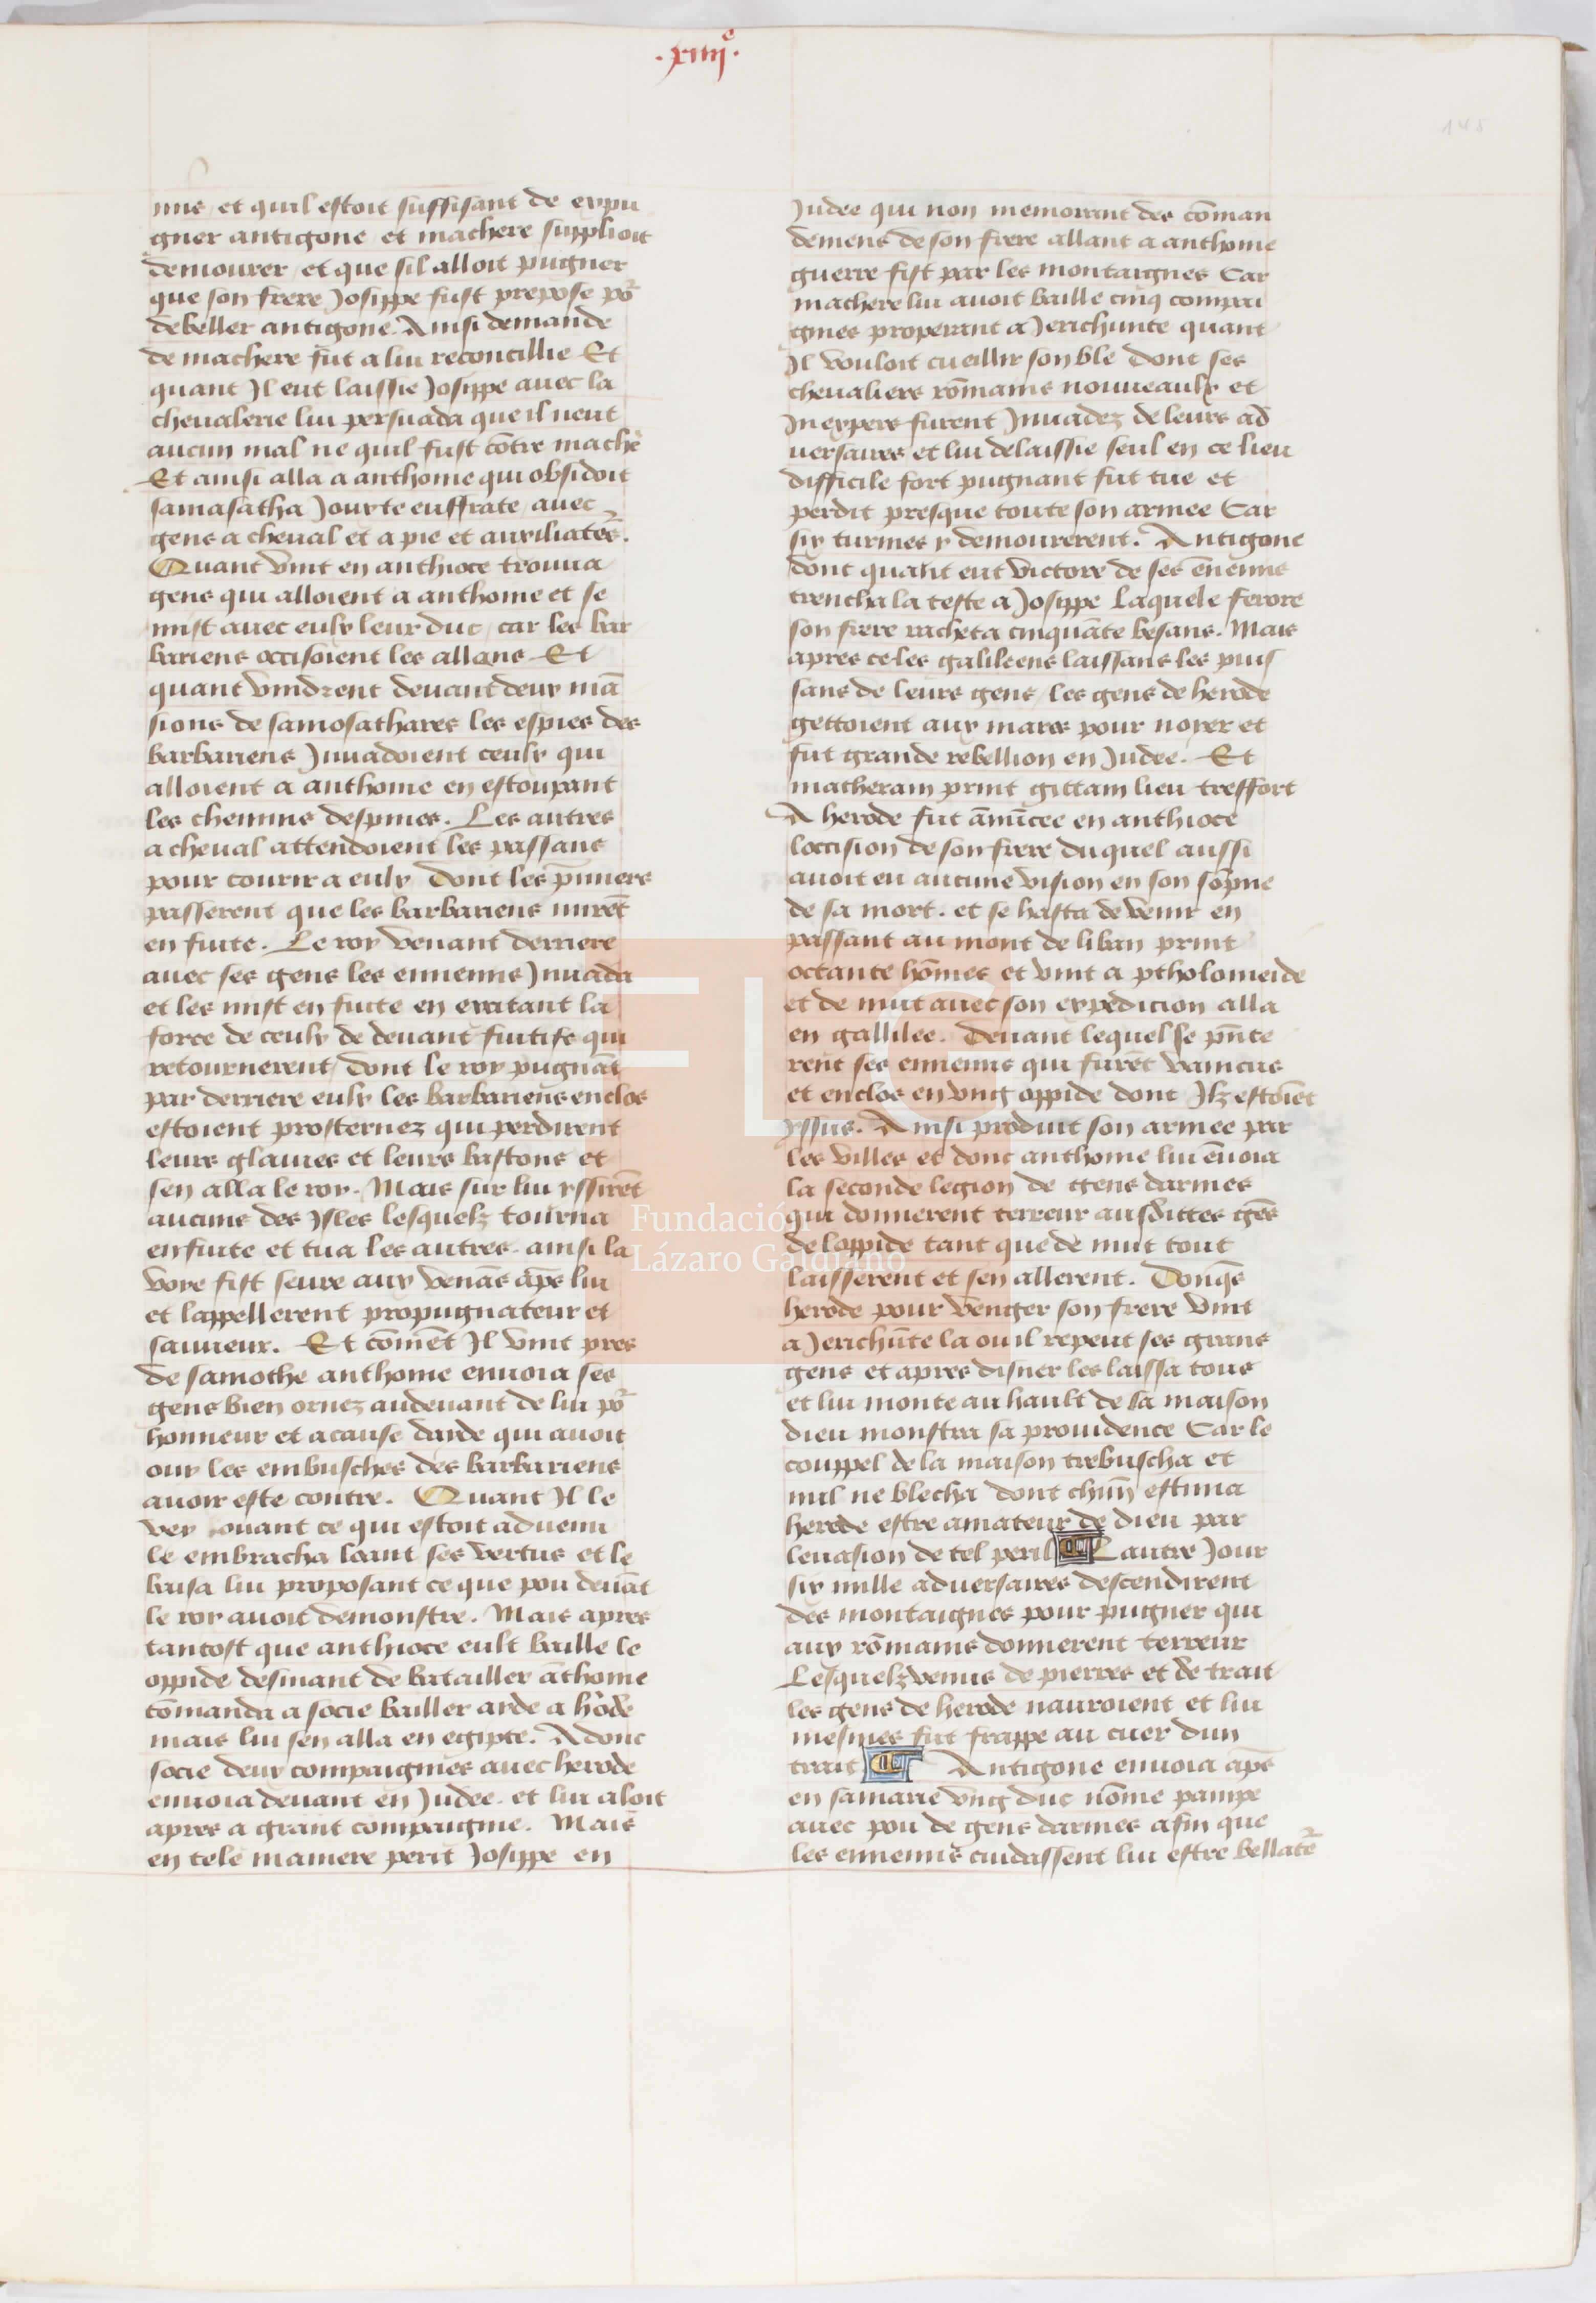 .xiiii^e.
145
nus et quil estoit suffisant de expu
gner antigone et machere supplioit
demourer et que sil alloit pugner
que son frere Josippe fust prepose po^r
debeller antigone. Ainsi demande
de machere fut a lui reconcillie Et
quant Il eut laissie Josippe auec la
cheualerie lui persuada que il neut
aucun mal ne quil fust cōtre mache
Et ainsi alla a anthoine qui obsidoit
samasatha Jouxte euffrate auec
gens a cheual et a pie et auxiliates.
Quant vint en anthioce trouua
gens qui alloient a anthoine et se
mist auec eulx leur duc car les bar
bariens occisoient les allans Et
quant vindrent deuant deux mā
sions de samosathares les espies des
barbariens Jnuadoient ceulx qui
alloient a anthoine en estoupant
les chemins despines. Les autres
a cheual attendoient les passans
pour courir a eulx Dont les p̄miers
passerent que les barbariens mirēt
en fuite. Le roy venant derriere
auec ses gens les ennemis Jnuada
et les mist en fuite en excitant la
force de ceulx de deuant fuitifs qui
retournerent dont le roy pugnāt
par derriere eulx les barbariens enclos
estoient prosternez qui perdirent
leurs glaiues et leurs bastons et
sen alla le roy. Mais sur lui yssirēt
aucuns des Jsles lesquelz tourna
en fuite et tua les autres. ainsi la
voye fist seure aux venās ap̄s lui
et lappellerent propugnateur et
sauueur. Et cōmēt Il vint pres
de samothe anthoine enuoia ses
gens bien ornez audeuant de lui po^r
honneur et a cause daide qui auoit
ouy les embusches des barbariens
auoir este contre. Quant Il le
vey ouant ce qui estoit aduenu
le embracha loant ses vertus et le
baisa lui proposant ce que pou deuāt
le roy auoit demonstre. Mais apres
tantost que anthioce eult baille le
oppide desinant de batailler āthoine
cōmanda a socie bailler aide a h̄ode
mais lui sen alla en egipte. Adonc
socie deux compaignies auec herode
enuoia deuant en Judee. et lui aloit
apres a grant compaignie. Mais
en tele maniere perit Josippe en
Judee qui non memorant des cōman
demens de son frere allant a anthoine
guerre fist par les montaignes Car
machere lui auoit baille cinq compai
gnies properant a Jerichunte quant
Jl vouloit cueillir son ble dont ses
cheualiers rōmains nouueaulx et
Jnexpers furent Jnuadez de leurs ad
uersaires et lui delaissie seul en ce lieu
difficile fort pugnant fut tue et
perdit presque toute son armee Car
six turmes y demourerent. Antigone
dont quant eut victore de ses ēnemis
trencha la teste a Josippe laquele ferore
son frere racheta cinquāte besans. Mais
apres ce les galileens laissans les puis
sans de leurs gens les gens de herode
gettoient aux mares pour noyer et
fut grande rebellion en Judee. Et
macheram print gittam lieu treffort
A herode fut ānūcee en anthioce
loccision de son frere duquel aussi
auoit eu aucune vision en son sōpne
de sa mort. et se hasta de venir en
passant au mont de liban print
octante hōmes et vint a ptholomeide
et de nuit auec son expedicion alla
en gallilee. Deuant lequel se p̄nte
rent ses ennemis qui furēt vaincus
et enclos en vng oppide dont Jlz estoiēt
yssus. Ainsi produit son armee par
les villes et donc anthoine lui ēuoia
la seconde legion de gens darmes
qui donnerent terreur ausdittes gēs
de loppide tant que de nuit tout
laisserent et sen allerent. Donq̄s
herode pour venger son frere vint
a Jerichūte la ou il repeut ses grans
gens et apres disner les laissa tous
et lui monte au hault de sa maison
dieu monstra sa prouidence Car le
couppel de la maison trebuscha et
nul ne blecha dont chūn estima
herode estre amateur de dieu par
leuasion de tel peril Lautre Jour
six mille aduersaires descendirent
des montaignes pour pugner qui
aux rōmains donnerent terreur
Lesquelz venus de pierres et de trait
les gens de herode nauroient et lui
mesmes fut frappe au cuer dun
trait Antigone enuoia ap̄s
en samarie vng duc nōme pampe
auec pou de gens darmes afin que
les ennemis cuidassent lui estre bellate^r
Fundación
Lázaro Galdiano
FLG